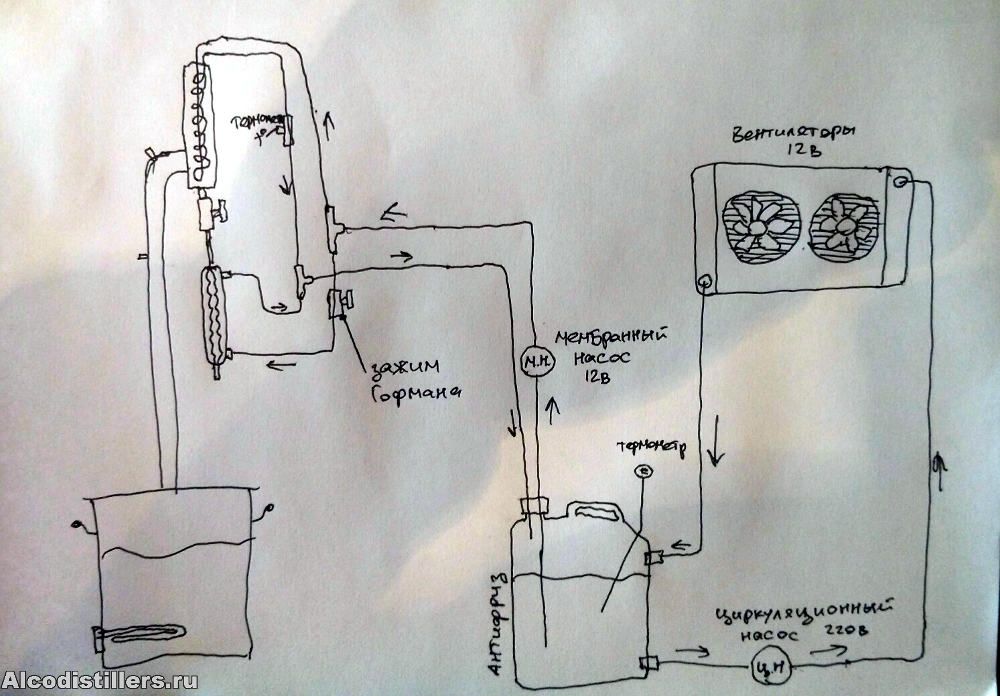 термометр
Вентиляторы
12В
мембранный
насос
12В
М.Н.
зажим
Гофмана
термометр
Антифриз
циркуляционный
насос 220В
Ц.Н
Alcodistillers.ru